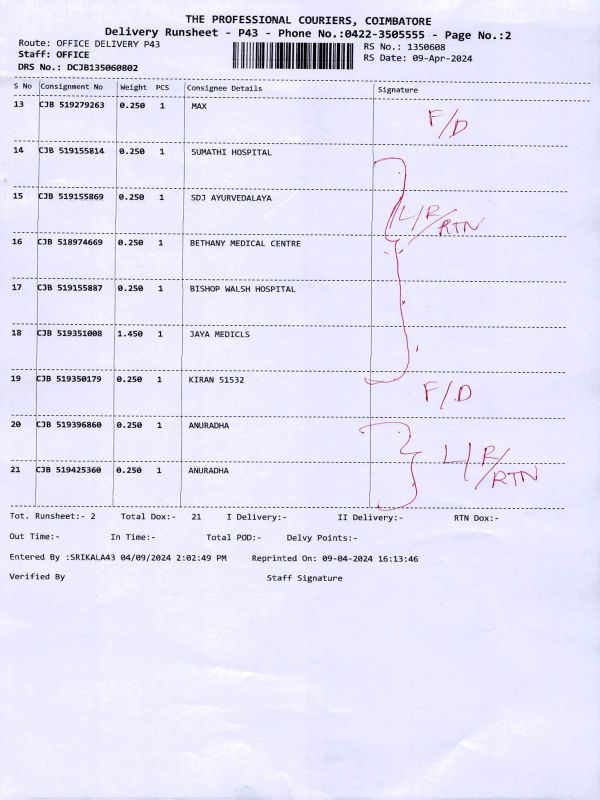 THE PROFESSIONAL COURIERS, COIMBATORE
Delivery Runsheet - P43 - Phone No.:0422-3505555 - Page No.:2
Route: OFFICE DELIVERY P43
RS No.: 1350608
Staff: OFFICE
RS Date: 09-Apr-2024
DRS No.: DCJB135060802
S No Consignment No Weight PCS Consignee Details Signature
13 CJB 519279263 0.250 1 MAX
F/D
14 CJB 519155814 0.250 1 SUMATHI HOSPITAL
15 CJB 519155869 0.250 1 SDJ AYURVEDALAYA
L/R/RTN
16 CJB 518974669 0.250 1 BETHANY MEDICAL CENTRE
17 CJB 519155887 0.250 1 BISHOP WALSH HOSPITAL
18 CJB 519351008 1.450 1 JAYA MEDICLS
19 CJB 519350179 0.250 1 KIRAN 51532
F/D
20 CJB 519396860 0.250 1 ANURADHA
L/R/RTN
21 CJB 519425360 0.250 1 ANURADHA
Tot. Runsheet:- 2 Total Dox:- 21 I Delivery:- II Delivery:- RTN Dox:-
Out Time:- In Time:- Total POD:- Delvy Points:-
Entered By :SRIKALA43 04/09/2024 2:02:49 PM Reprinted On: 09-04-2024 16:13:46
Verified By Staff Signature